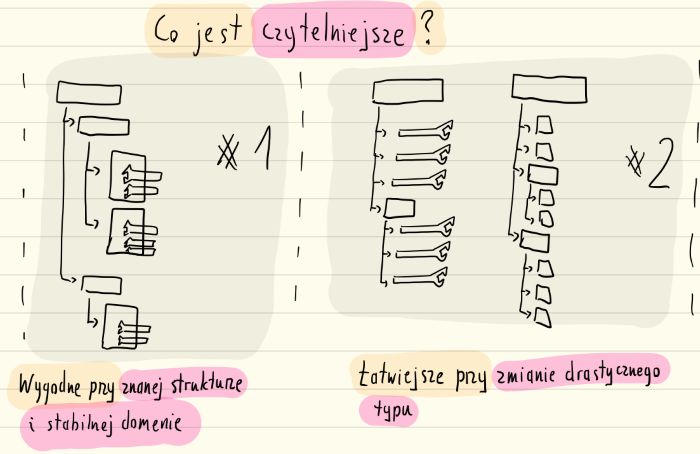 Co jest czytelniejsze?
#1
#2
Wygodne przy znanej strukturze
i stabilnej domenie
Łatwiejsze przy zmianie drastycznego
typu